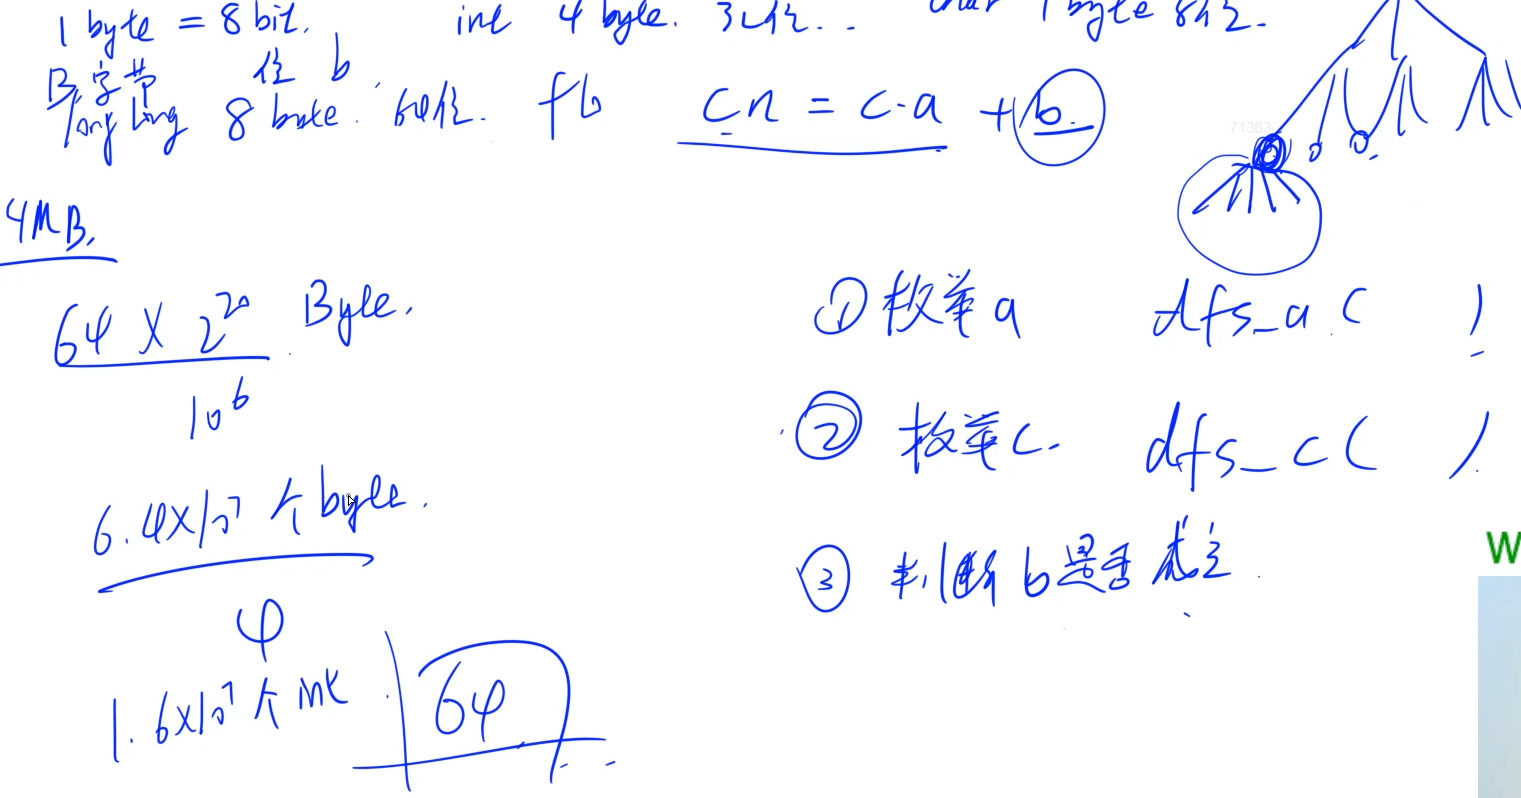 1 byte = 8 bit. int 4 byte. 32位.. char 1 byte 8位.
B 字节 位 b
long long 8 byte. 64位.
cn = c·a + b.
71363
4MB.
64 × 2^20 Byte.
10^6
6.4×10^7 个 byte.
4
1.6×10^7 个 int
64
① 枚举a dfs_a( )
② 枚举c. dfs_c( )
③ 判断b是否成立.
W